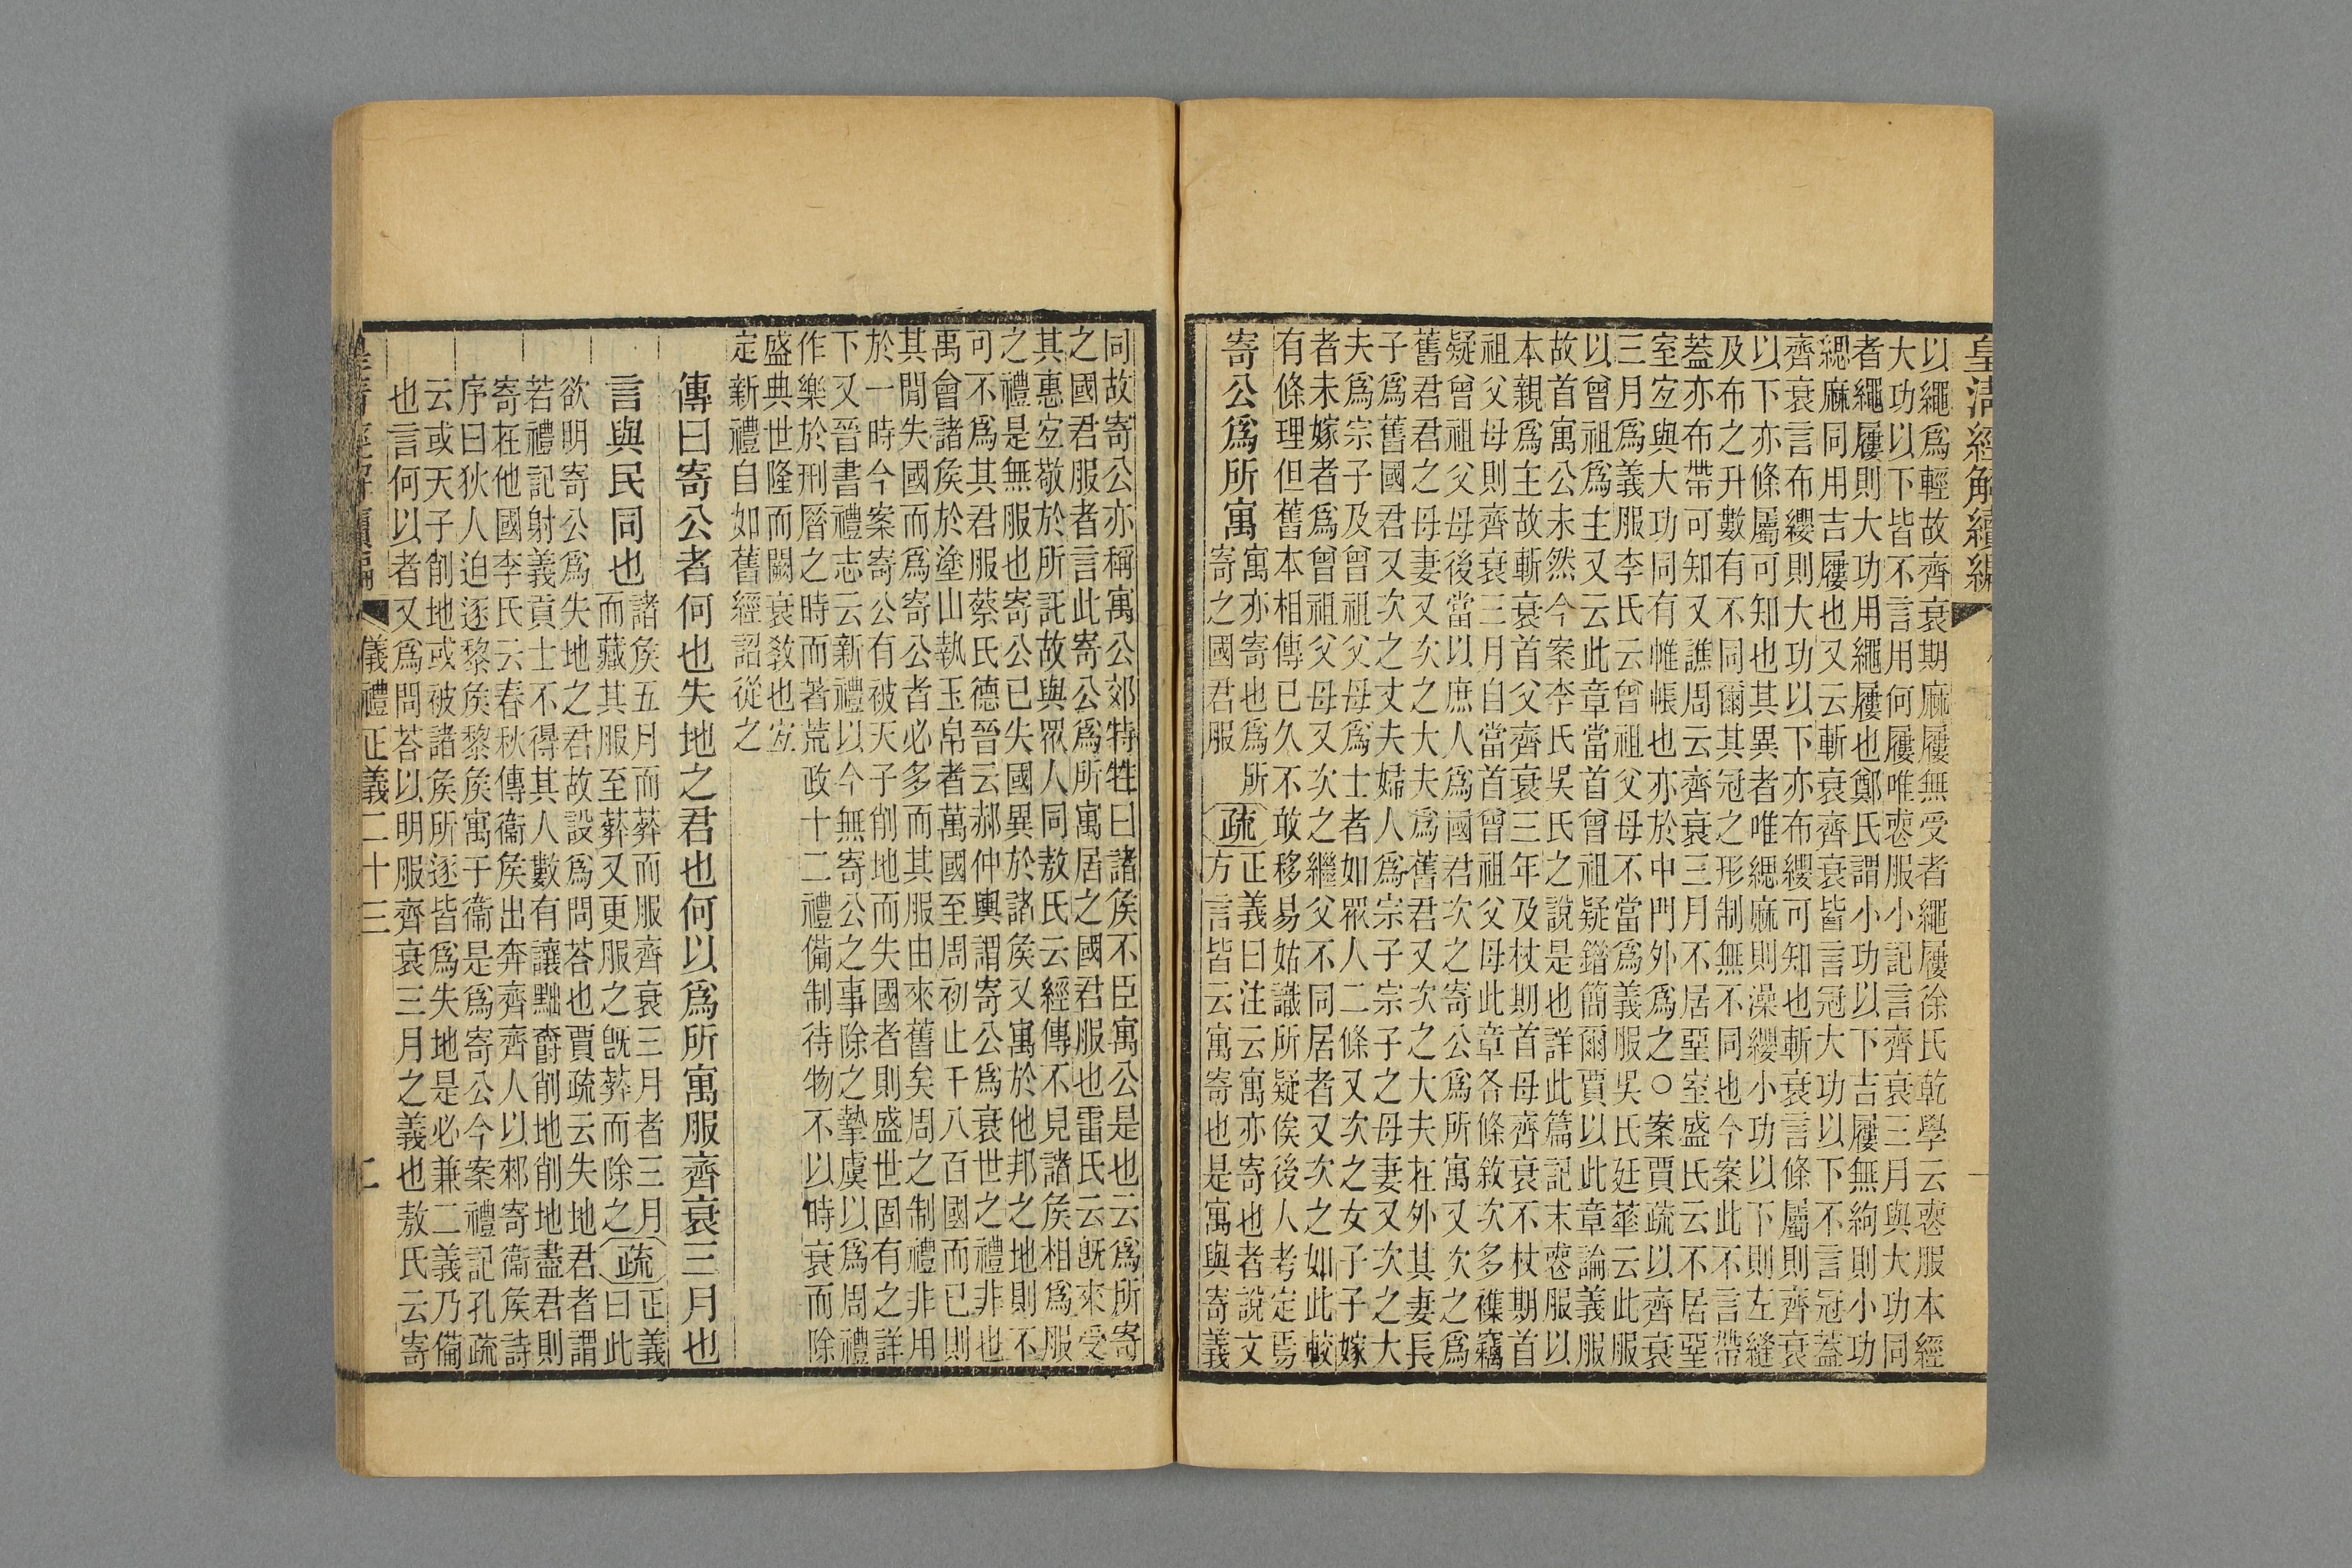 皇清經解續編
以繩爲輕故齊衰期麻屨無受者繩屨徐氏乾學云喪服本經
大功以下皆不言用何屨唯喪服小記言齊衰三月與大功同
者繩屨則大功用繩屨也鄭氏謂小功以下吉屨無絇則小功
緦麻同用吉屨也又云斬衰齊衰皆言冠大功以下不言冠蓋
齊衰言布纓則大功以下亦布纓可知也斬衰言條屬則齊衰
以下亦條屬可知也其異者唯緦麻則澡纓小功以下則左縫
及布之升數有不同爾其冠之形制無不同也今案此不言帶
蓋亦布帶可知又譙周云齊衰三月不居堊室盛氏云不居堊
室宐與大功同有帷帳也亦於中門外爲之○案賈疏以齊衰
三月爲義服李氏云曾祖父母不當爲義服吳氏廷華云此服
以曾祖爲主又云此章當首曾祖疑鐕簡爾賈以此章論義服
故首寓公未然今案李氏吳氏之說是也詳此篇記末喪服以
本親爲主故斬衰首父齊衰三年及杖期首母齊衰不杖期首
祖父母則齊衰三月自當首曾祖父母此章各條敘次多襍竊
疑曾祖父母後當以庶人爲國君次之寄公爲所寓又次之爲
舊君君之母妻又次之大夫爲舊君又次之大夫在外其妻長
子爲舊國君又次之丈夫婦人爲宗子宗子之母妻又次之大
夫爲宗子及曾祖父母爲士者如眾人二條又次之女子子嫁
者未嫁者爲曾祖父母又次之繼父不同居者又次之如此較
有條理但舊本相傳已久不敢移易姑識所疑俟後人考定焉
寄公爲所寓
寓亦寄也爲所
寄之國君服
疏
正義曰注云寓亦寄也者說文
方言皆云寓寄也是寓與寄義
同故寄公亦稱寓公郊特牲曰諸侯不臣寓公是也云爲所寄
之國君服者言此寄公爲所寓居之國君服也雷氏云旣來受
其惠宐敬於所託故與眾人同敖氏云經傳不見諸侯相爲服
之禮是無服也寄公已失國異於諸侯又寓於他邦之地則不
可不爲其君服蔡氏德晉云郝仲輿謂寄公爲衰世之禮非也
禹會諸侯於塗山執玉帛者萬國至周初止千八百國而已則
其閒失國而爲寄公者必多而其服由來舊矣周之制禮非用
於一時今案寄公有被天子削地而失國者則盛世固有之詳
下又晉書禮志云新禮以今無寄公之事除之摯虞以爲周禮
作樂於刑厝之時而著荒政十二禮備制待物不以時衰而除
盛典世隆而闕衰敎也宐
定新禮自如舊經詔從之
傳曰寄公者何也失地之君也何以爲所寓服齊衰三月也
言與民同也
諸侯五月而葬而服齊衰三月者三月
而藏其服至葬又更服之旣葬而除之
疏
正義
曰此
欲明寄公爲失地之君故設爲問荅也賈疏云失地君者謂
若禮記射義貢士不得其人數有讓黜爵削地削地盡君則
寄在他國李氏云春秋傳衞侯出奔齊齊人以郲寄衞侯詩
序曰狄人迫逐黎侯黎侯寓于衞是爲寄公今案禮記孔疏
云或天子削地或被諸侯所逐皆爲失地是必兼二義乃備
也言何以者又爲問荅以明服齊衰三月之義也敖氏云寄
皇清經解續編
儀禮正義二十三
二